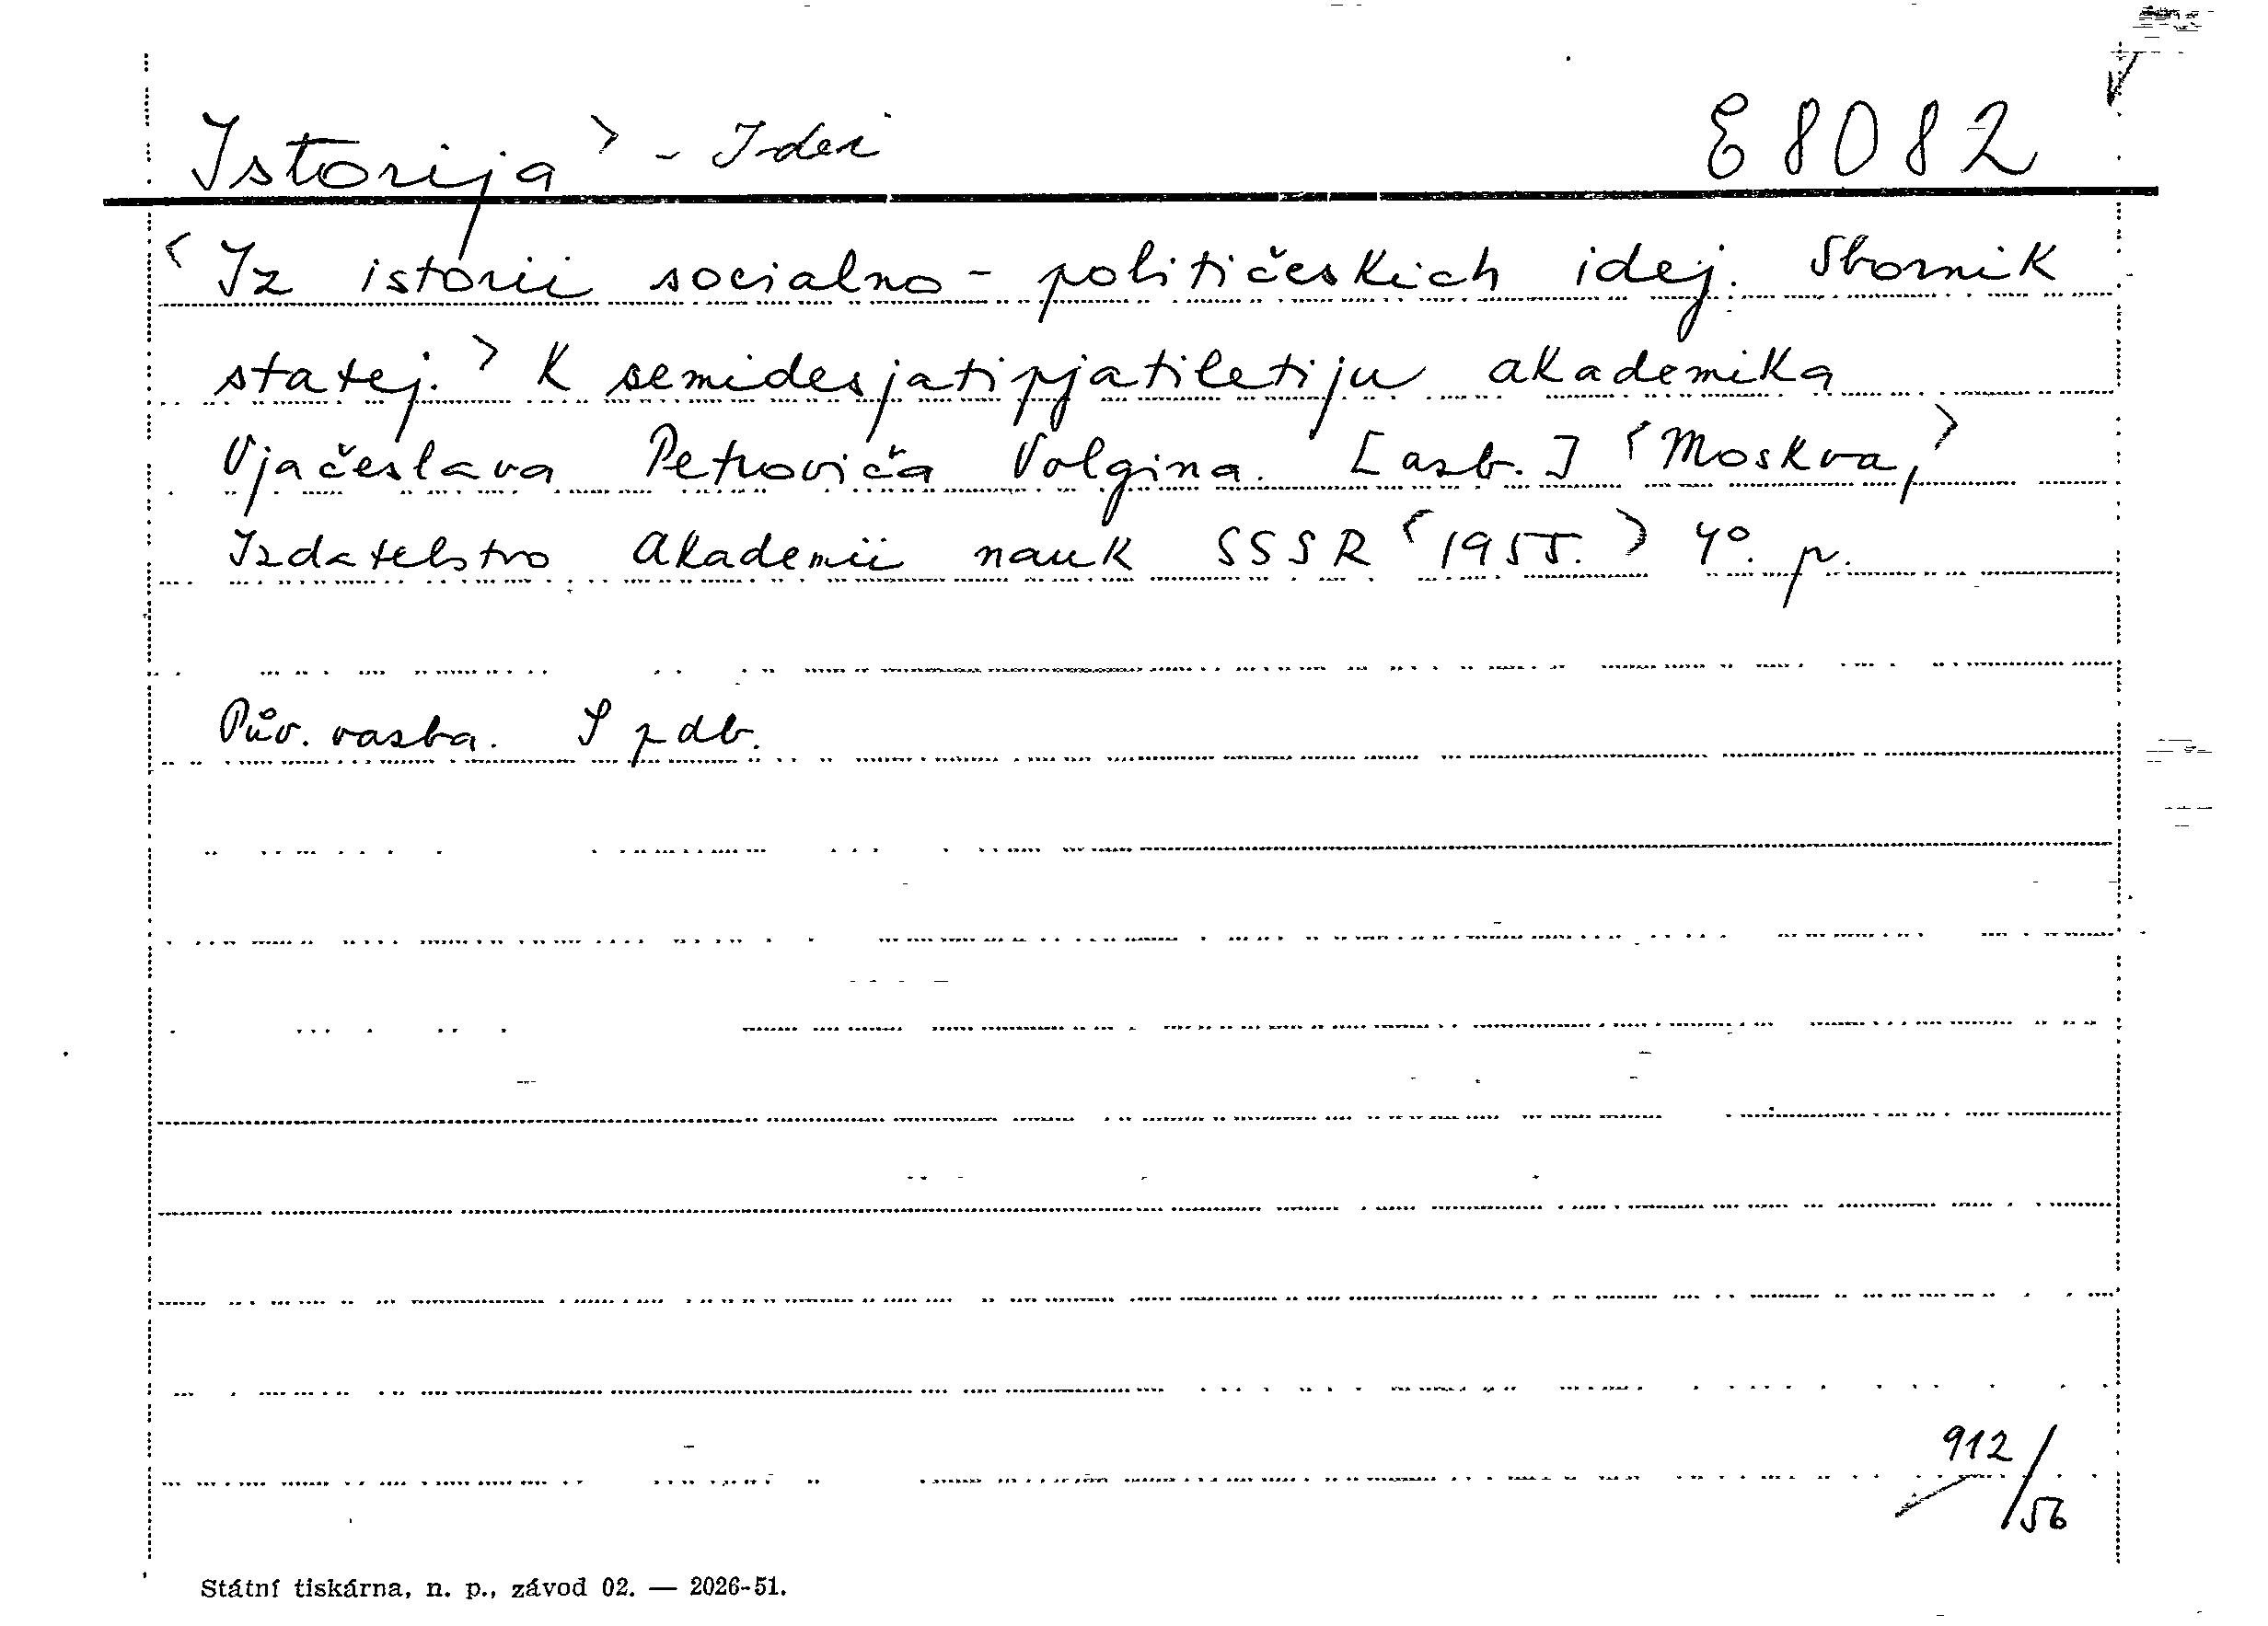 Istorija> - Idei E 8082
<Iz istorii socialno-političeskich idej. Sbornik
statej.> K semidesjatipjatiletiju akademika
Vjačeslava Petroviča Volgina. [azb.] <Moskva,>
Izdatelstvo Akademii nauk SSSR <1955.> 4°. p.
Pův. vazba. S pdb.
912/56
Státní tiskárna, n. p., závod 02. — 2026-51.